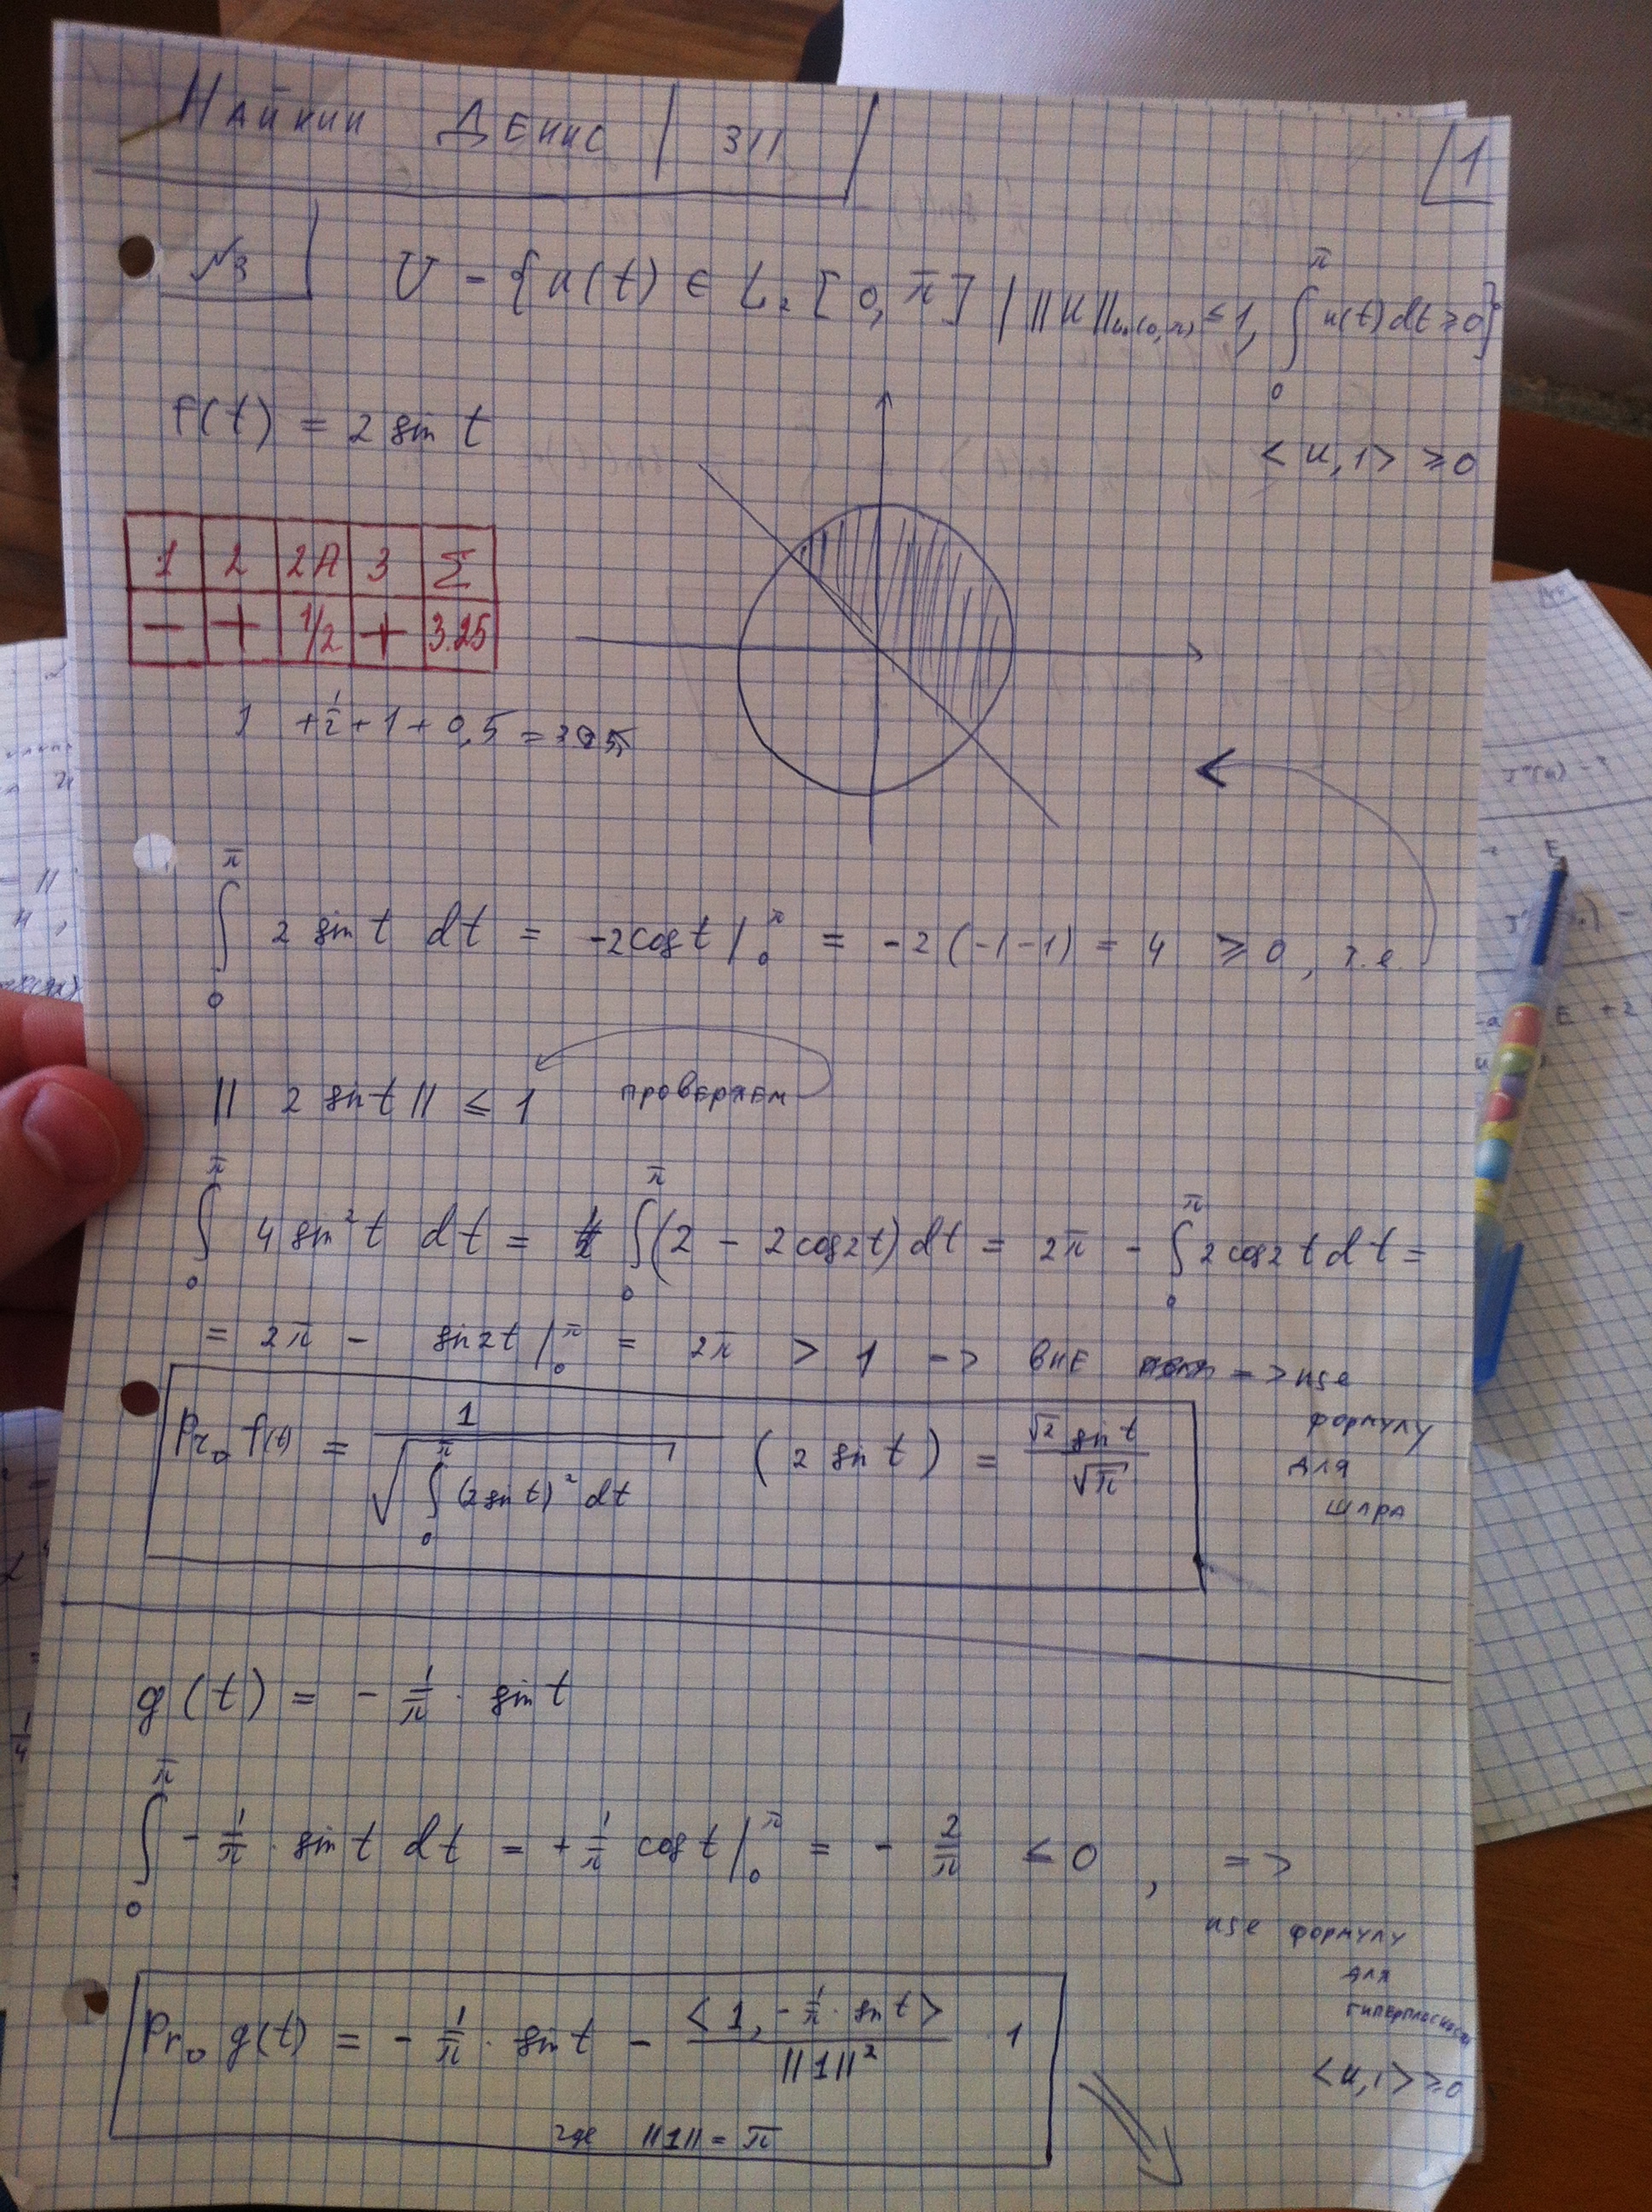 Найкин Денис | 311
1
№3 U = {u(t) ∈ L₂[0, π] | ||u||_{L₂(0,π)} ≤ 1, ∫₀^π u(t)dt ≥ 0}
f(t) = 2 sin t
<u, 1> ≥ 0
1 2 2А 3 Σ
− + 1/2 + 3.25
∫₀^π 2 sin t dt = -2cos t |₀^π = -2(-1-1) = 4 ≥ 0, т.е.
|| 2 sin t || ≤ 1 проверяем
∫₀^π 4 sin² t dt = ∫₀^π (2 - 2cos2t)dt = 2π - ∫₀^π 2cos2t dt =
= 2π - sin2t |₀^π = 2π > 1 -> вне => use
формулу
для
шара
Pr_U f(t) = 1/√(∫₀^π (2sin t)² dt) (2 sin t) = √2 sin t/√π
g(t) = - 1/π · sin t
∫₀^π - 1/π · sin t dt = + 1/π cos t |₀^π = - 2/π ≤ 0, =>
use формулу
для
гиперплоскости
<u,1> ≥ 0
Pr_U g(t) = - 1/π · sin t - <1, - 1/π · sin t>/||1||² · 1
где ||1|| = π